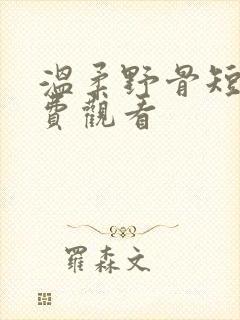 溫柔野骨短
費觀看
羅森文